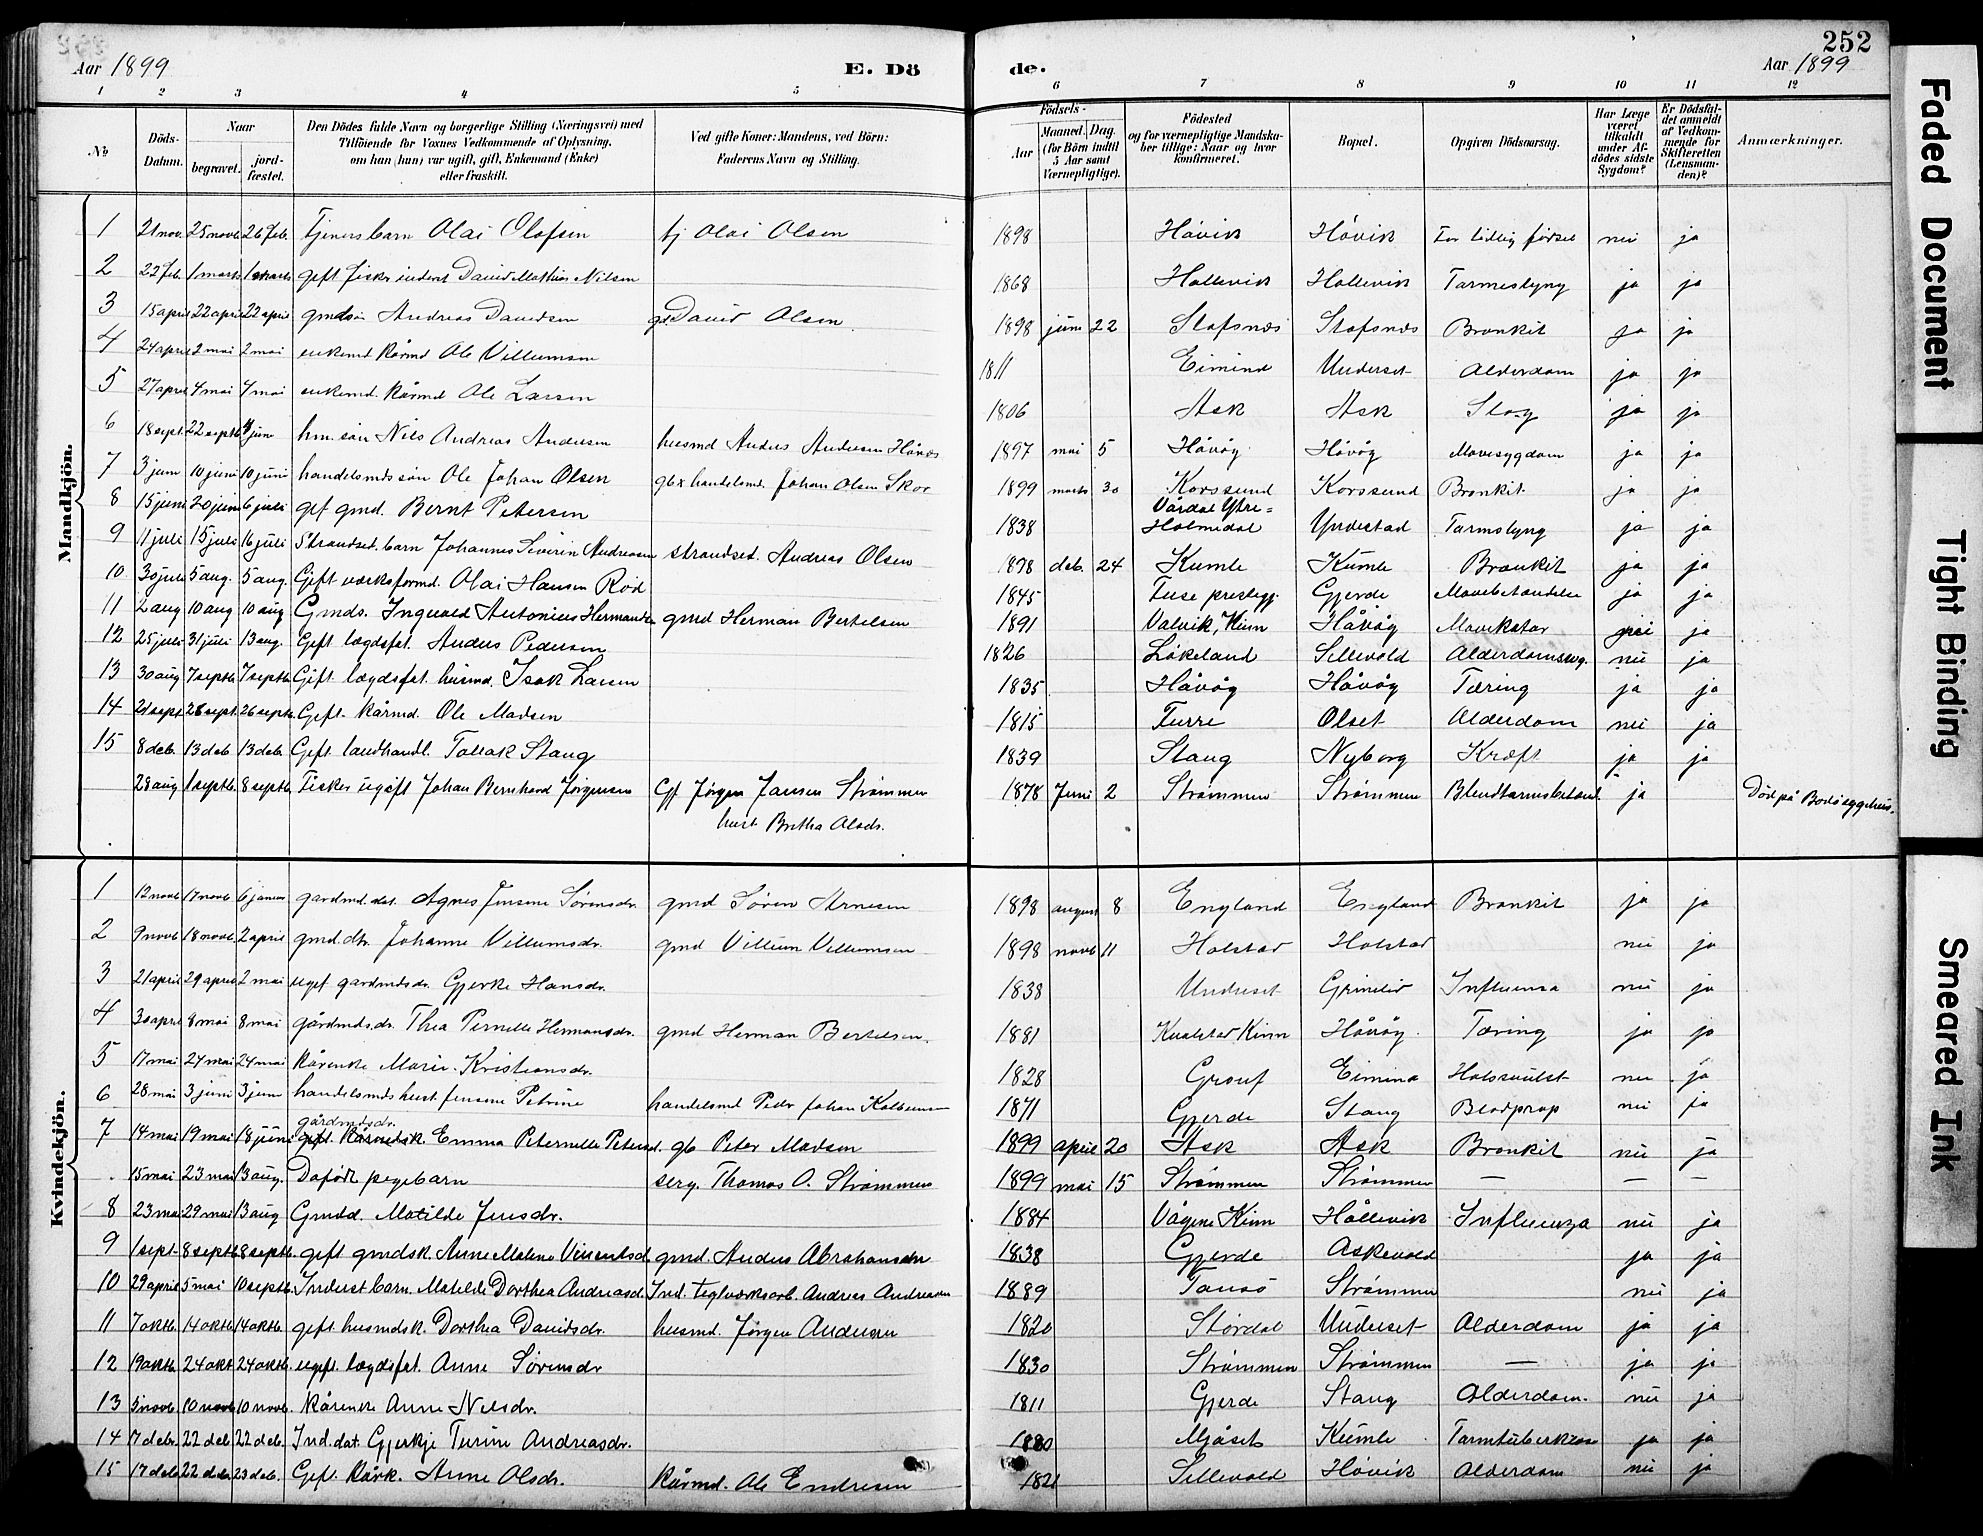 252
Aar 1899 E. Dö de. Aar 1899
1 2 3 4 5 6 7 8 9 10 11 12
No Döds-Datum. Naar begravet. jordfæstet. Den Dödes fulde Navn og borgerlige Stilling (Næringsvei) med Tilföiende for Voxnes Vedkommende af Oplysning, om han (hun) var ugift, gift, Enkemand (Enke) eller fraskilt. Ved gifte Koner: Mandens, ved Börn: Faderens Navn og Stilling. Födsels- Aar Maaned. Dag. (for Börn indtil 5 Aar samt Værnepligtige). Födested og for værnepligtige Mandskaber tillige: Naar og hvor konfirmeret. Bopæl. Opgiven Dödsaarsag. Har Læge været tilkaldt under Afdödes sidste Sygdom? Er Dödsfaldet anmeldt af Vedkommende for Skifteretten (Lensmanden)? Anmærkninger.
Mandkjön.
1 21 nov. 25 novb 26 feb. Tjeners barn Olai Olafsen tj Olai Olsen 1898 Håvik Håvik For tidlig fødsel nei ja
2 22 feb. 1 marts 1 marts gift fisker inderst David Mathias Nilsen 1868 Hellevik Hellevik Tarmeslyng ja ja
3 15 april 22 april 22 april gmdsøn Andreas Davidsen David Olsen 1898 juni 22 Stafsnes Stafsnes Bronkit ja ja
4 24 april 2 mai 2 mai enkemd kårmd Ole Villumsen 1811 Eimind Underset Alderdom ja ja
5 27 april 4 mai 4 mai enkemd. kårmd Ole Larsen 1806 Ask Ask Slag ja ja
6 18 sept. 22 septb juni hm. søn Nils Andreas Andersen husmd Anders Andersen 1897 mai 5 Håvåg Håvåg Mavesygdom ja ja
7 3 juni 10 juni 10 juni handelsmds søn Ole Johan Olsen gbr handelsmd. Johan Olsen Skor 1899 marts 30 Korssund Korssund Bronkit ja ja
8 15 juni 20 juni 6 juli gift gmd. Bernt Petersen 1838 Vårdal Ytre= Holmedal Yndestad Tarmslyng ja ja
9 11 juli 15 juli 16 juli Strandsed. barn Johannes Severin Andreasen strandsed. Andreas Olsen 1898 deb. 24 Kumle Kumle Bronkit ja ja
10 30 juli 5 aug. 5 aug. Gift værksformd. Olai Hansen Rød 1845 Fuse prestegj. Gjerde Mavebetændelse ja ja
11 2 aug 10 aug 10 aug Gmds. Ingvald Antonius Hermansen gmd Herman Bertelsen 1891 Valvik, Kinn Håvåg Mavekatar nei ja
12 25 juli 31 juli 13 aug. Gift lægdsfat. Anders Pedersen 1826 Løkeland Sellevold Alderdomssvag. nei ja
13 30 aug 7 septb 7 septb. Gift lægdsfat. husmd. Isak Larsen 1835 Håvåg Håvåg Tæring ja ja
14 21 sept. 26 sept. 26 septb. Gift. kårmd. Ole Madsen 1815 Furre Olset Alderdom nei ja
15 8 deb. 13 deb 13 deb. Gift landhandl. Tollak Stang 1839 Stang Nyborg Kræft ja ja
28 aug 1 septb. 8 septb. Fisker ugift Johan Bernhard Jørgensen Gf Jørgen Jansen Strømmen 1878 Juni 2 Strømmen Strømmen Blindtarmsbetænd. ja Död på Bodö sygehus.
hust Britha Olsdr.
Kvindekjön.
1 12 novb 17 novb 6 januar gardmd. dat. Agnes Jensine Sørensdr. gmd Søren Arnesen 1898 august 8 England England Bronkit ja ja
2 9 novb 18 novb. 2 april gmd. dtr. Johanne Villumsdr. gmd Villum Villumsen 1898 novb 11 Holstad Holstad nei ja
3 21 april 29 april 2 mai ugif gardmdsdr. Gjerke Hansdr. 1838 Underset Grinelid Influensa nei ja
4 30 april 8 mai 8 mai gårdmdsdr. Thea Pernille Hermansdr. gmd Herman Bertelsen. 1881 Kvalstad Kinn Håvåg. Tæring ja ja
5 17 mai 24 mai 24 mai kårenke Marie Kristiansdr. 1828 Grouf Eimind Halssvulst nei ja
6 28 mai 3 juni 3 juni handelsmds hust Jensine Petrine handelsmd Peder Johan Kolbensen 1871 Gjerde Stang Blodprop nei ja
gårdmdsdr.
7 14 mai 19 mai 18 juni gift kårmdsk. Emma Peternille Petersd. gb Peter Madsen 1899 april 20 Ask Ask Bronkit nei ja
15 mai 23 mai 13 aug. Dødfødt pigebarn serg. Thomas O. Strømmen 1899 mai 15 Strømmen Strømmen — — —
8 23 mai 29 mai 13 aug Gmdd. Matilde Jensdr. 1884 Vågene Kinn Hållevik Influenza nei ja
9 1 sept. 8 septb 8 septb. gift gmdsk. Anne Malene Vincentsd. gmd. Anders Abrahamsen 1838 Gjerde Askevold ja ja
10 29 april 5 mai 10 septb. Inderst barn. Matilde Dorthea Andreasd. Ind. teglværksarb. Andreas Andreasen 1889 Tansø Strømmen nei ja
11 7 oktb. 14 oktb 14 oktb. gift husmdsk. Dorthea Davidsdr. husmd. Jørgen Andersen 1820 Stördal Underset Alderdom ja ja
12 19 oktb. 24 okt. 24 oktb. ugift. lægdsfat. Anne Sørensdr 1830 Strømmen Strømmen — ja ja
13 5 novb. 10 novb 10 novb. Kårenke Anne Nilsdr. 1811 Gjerde Stang Alderdom. nei ja
14 17 debr. 22 deb 22 deb. Ind. dat. Gjertje Turine Andreasdr. 1880 Mjåset Kumle Tarmtuberkulose ja ja
15 17 deb 22 deb. 23 deb. Gift. kårk. Anne Olsdr. Kårmd. Ole Endresen 1821 Sellevold Håvik Alderdom nei ja
Faded Document
Tight Binding
Smeared Ink